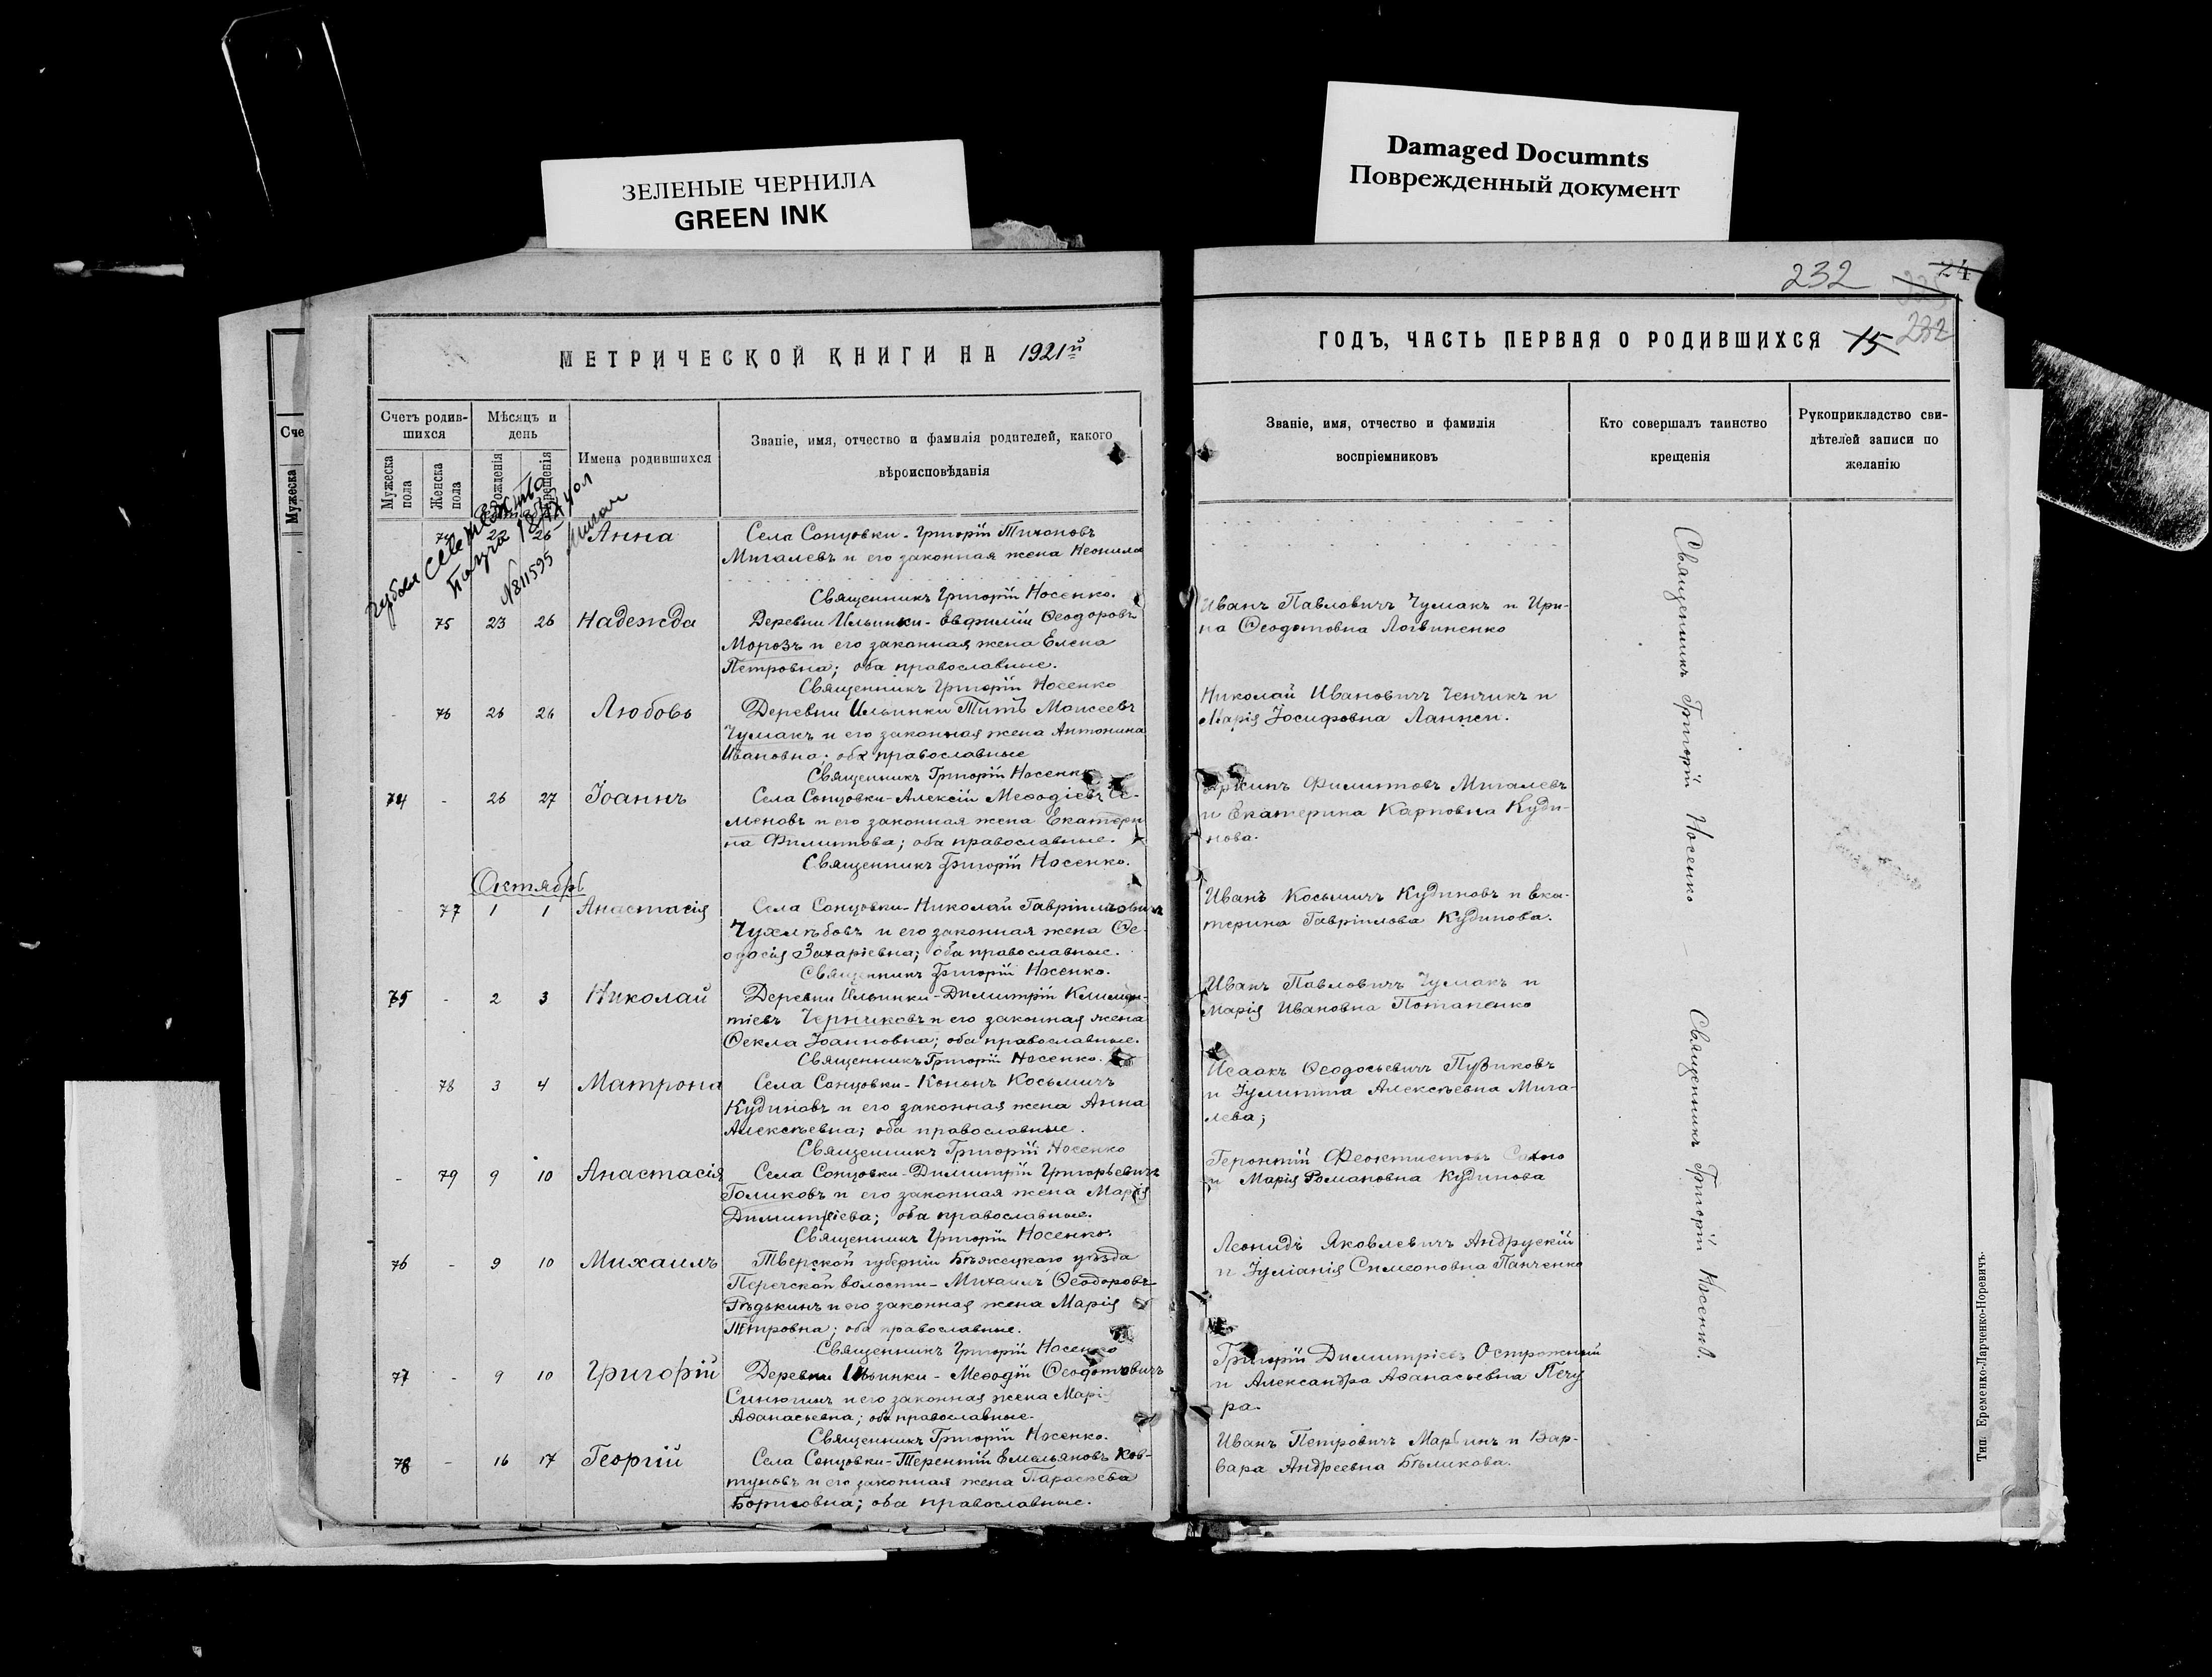 ЗЕЛЕНЫЕ ЧЕРНИЛА
GREEN INK
Damaged Documnts
Поврежденный документ
232
24
232
МЕТРИЧЕСКОЙ КНИГИ НА 1921й
ГОДЪ, ЧАСТЬ ПЕРВАЯ О РОДИВШИХСЯ 15
Сче
Мужеска
Счетъ родив-
шихся
Мужеска
пола
Женска
пола
Мѣсяцъ и
день
Рожденія
Крещенія
Имена родившихся
Званіе, имя, отчество и фамилія родителей, какого
вѣроисповѣданія
Званіе, имя, отчество и фамилія
воспріемниковъ
Кто совершалъ таинство
крещенія
Рукоприкладство сви-
дѣтелей записи по
желанію
№ 811595
74 22 26 Анна
Села Сонцовки - Григорій Тихоновъ
Мигалевъ и его законная жена Неонила
Священникъ Григорій Носенко.
75 23 26 Надежда
Деревни Ильинки - Евфимій Ѳеодоровъ
Морозъ и его законная жена Елена
Петровна; оба православные.
Священникъ Григорій Носенко
Иванъ Павловичъ Чумакъ и Ири-
на Ѳеодотовна Логвиненко
- 76 26 26 Любовь
Деревни Ильинки Титъ Моисеевъ
Чумакъ и его законная жена Антонина
Ивановна; оба православные
Священникъ Григорій Носенко
Николай Ивановичъ Ченчикъ и
Марія Іосифовна
74 - 26 27 Іоаннъ
Села Сонцовки - Алексій Меѳодіевъ Се-
меновъ и его законная жена Екатери
на Филиппова; оба православные.
Священникъ Григорій Носенко.
Филипповъ Мигалевъ
и Екатерина Карповна Куди-
нова.
Октябрь
- 77 1 1 Анастасія
Села Сонцовки - Николай Гавріиловичъ
Чухлѣбовъ и его законная жена Ѳе-
одосія Захаріевна; оба православные.
Священникъ Григорій Носенко.
Иванъ Косьмичъ Кудиновъ и Ека-
терина Гавріилова Кудинова.
75 - 2 3 Николай
Деревни Ильинки - Димитрій Климен-
тіевъ Черниковъ и его законная жена
Ѳекла Іоанновна; оба православные.
Священникъ Григорій Носенко.
Иванъ Павловичъ Чумакъ и
Марія Ивановна Потапенко
- 78 3 4 Матрона
Села Сонцовки - Кононъ Косьмичъ
Кудиновъ и его законная жена Анна
Алексѣевна; оба православные.
Священникъ Григорій Носенко
Исаакъ Ѳеодосьевичъ Пузиковъ
и Іулитта Алексѣевна Мига-
лева;
- 79 9 10 Анастасія
Села Сонцовки - Димитрій Григорьевичъ
Голиковъ и его законная жена Марія
Димитріева; оба православные.
Священникъ Григорій Носенко.
Геронтій Феоктистовъ
и Марія Романовна Кудинова
76 - 9 10 Михаилъ
Тверской губерніи Бѣжецкаго уѣзда
волости - Михаилъ Ѳеодоровъ
Рѣдькинъ и его законная жена Марія
Петровна; оба православные.
Священникъ Григорій Носенко
Леонидъ Яковлевичъ Андрускій
и Іуліанія Симеоновна Панченко
77 - 9 10 Григорій
Деревни Ильинки - Меѳодій Ѳеодотовичъ
Синюгинъ и его законная жена Марія
Аѳанасьевна; оба православные.
Священникъ Григорій Носенко.
Григорій Димитріевъ Острожный
и Александра Аѳанасьевна Печу
ра.
78 - 16 17 Георгій
Села Сонцовки - Терентій Емельяновъ Ков-
туновъ и его законная жена Параскева
Борисовна; оба православные.
Иванъ Петровичъ и Вар-
вара Андреевна Бѣликова.
Священникъ Григорій Носенко
Священникъ Григорій Носенко.
Тип. Еременко-Ларченко-Норевичъ.